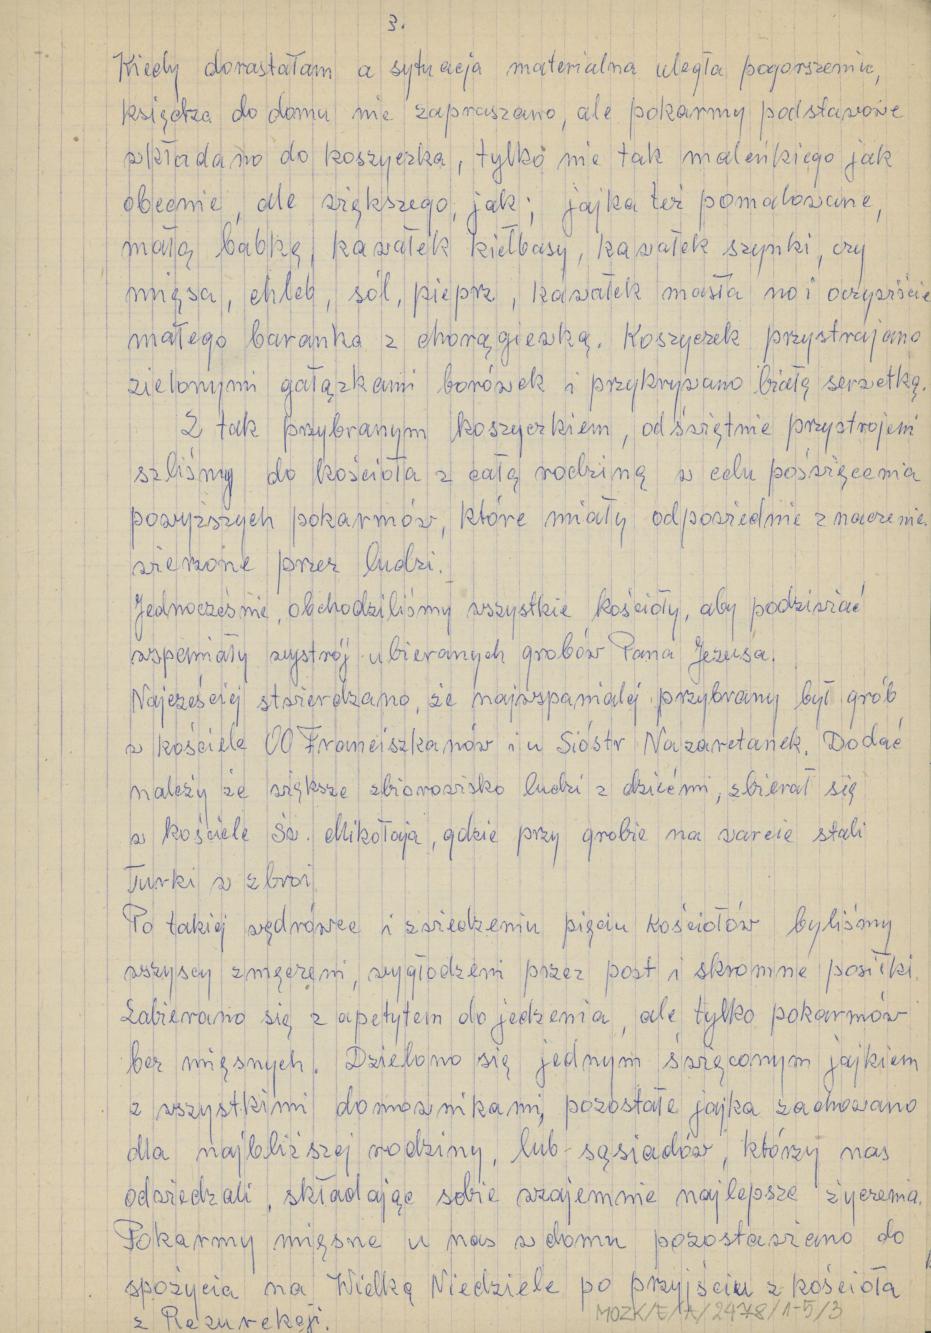 3.
Kiedy dorastałam a sytuacja materialna uległa pogorszeniu,
księdza do domu nie zapraszano, ale pokarmy podstawowe
wkładano do koszyczka, tylko nie tak maleńkiego jak
obecnie, ale większego, jak; jajka też pomalowane,
małą babkę, kawałek kiełbasy, kawałek szynki, czy
mięsa, chleb, sól, pieprz, kawałek masła no i oczywiście
małego baranka z chorągiewką. Koszyczek przystrajano
zielonymi gałązkami borówek i przykrywano białą serwetką.
Z tak przybranym koszyczkiem, odświętnie przystrojeni
szliśmy do kościoła z całą rodziną w celu poświęcenia
powyższych pokarmów, które miały odpowiednie znaczenie
wierzone przez ludzi.
Jednocześnie, obchodziliśmy wszystkie kościoły, aby podziwiać
wspaniały wystrój ubieranych grobów Pana Jezusa.
Najcześciej stwierdzano, że najwspanialej przybrany był grób
w kościele OO Franciszkanów i u Sióstr Nazaretanek. Dodać
należy że większe zbiorowisko ludzi z dziećmi, zbierał się
w kościele św. Mikołaja, gdzie przy grobie na warcie stali
Turki w zbroi
Po takiej wędrówce i zwiedzeniu pięciu kościołów byliśmy
wszyscy zmęczeni, wygłodzeni przez post i skromne posiłki.
Zabierano się z apetytem do jedzenia, ale tylko pokarmów
bez mięsnych. Dzielono się jednym święconym jajkiem
z wszystkimi domownikami, pozostałe jajka zachowano
dla najbliższej rodziny, lub sąsiadów, którzy nas
odwiedzali, składając sobie wzajemnie najlepsze życzenia.
Pokarmy mięsne u nas w domu pozostawiano do
spożycia na Wielką Niedziele po przyjściu z kościoła
z Rezurekcji.
MOZK/E/A/2478/1-5/3